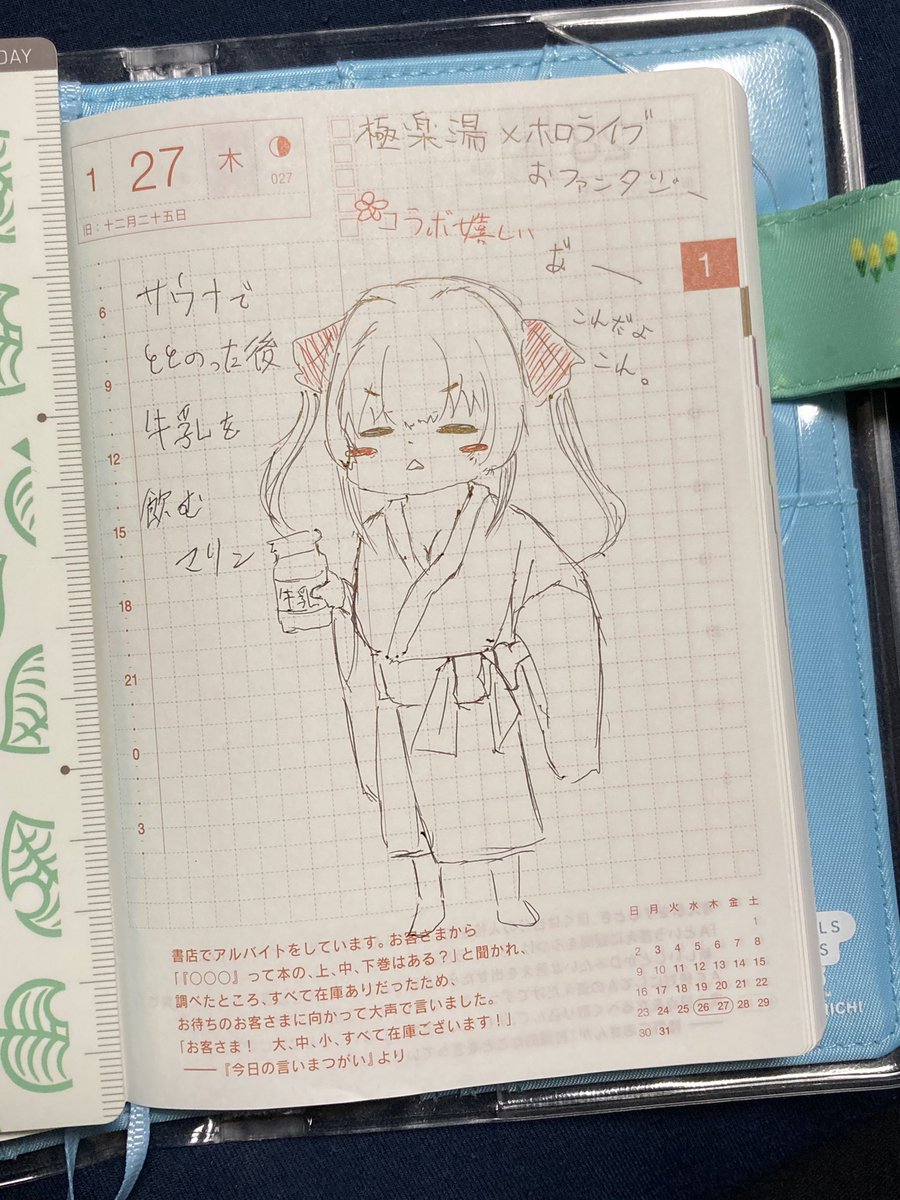 DAY
1 27 木
027
旧：十二月二十五日
極楽湯×ホロライブ
おファンタジ〜
コラボ嬉しい
1
サウナで
ととのった後
牛乳を
飲む
マリン
こんだょ
こん。
牛乳
6
9
12
15
18
21
0
3
書店でアルバイトをしています。お客さまから
「『○○○』って本の、上、中、下巻はある？」と聞かれ、
調べたところ、すべて在庫ありだったため、
お待ちのお客さまに向かって大声で言いました。
「お客さま！　大、中、小、すべて在庫ございます！」
——『今日の言いまつがい』より
日 月 火 水 木 金 土
1
2 3 4 5 6 7 8
9 10 11 12 13 14 15
16 17 18 19 20 21 22
23 24 25 26 27 28 29
30 31